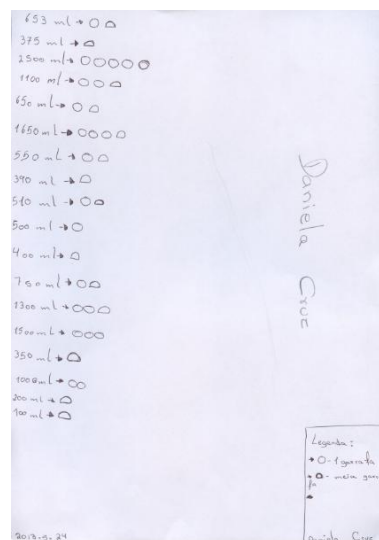 653 ml → ○ ⌓
375 ml → ⌓
2500 ml → ○○○○○
1100 ml → ○○⌓
650 ml → ○ ⌓
1650 ml → ○○○⌓
550 ml → ○⌓
390 ml → ⌓
510 ml → ○⌓
500 ml → ○
400 ml → ⌓
750 ml → ○⌓
1300 ml → ○○⌓
1500 ml → ○○○
350 ml → ⌓
1000 ml → ○○
200 ml → ⌓
100 ml → ⌓
Daniela Cruz
Legenda:
→ ○ - 1 garrafa
→ ⌓ - meia garra
fa
2013.5.24
Daniela Cruz